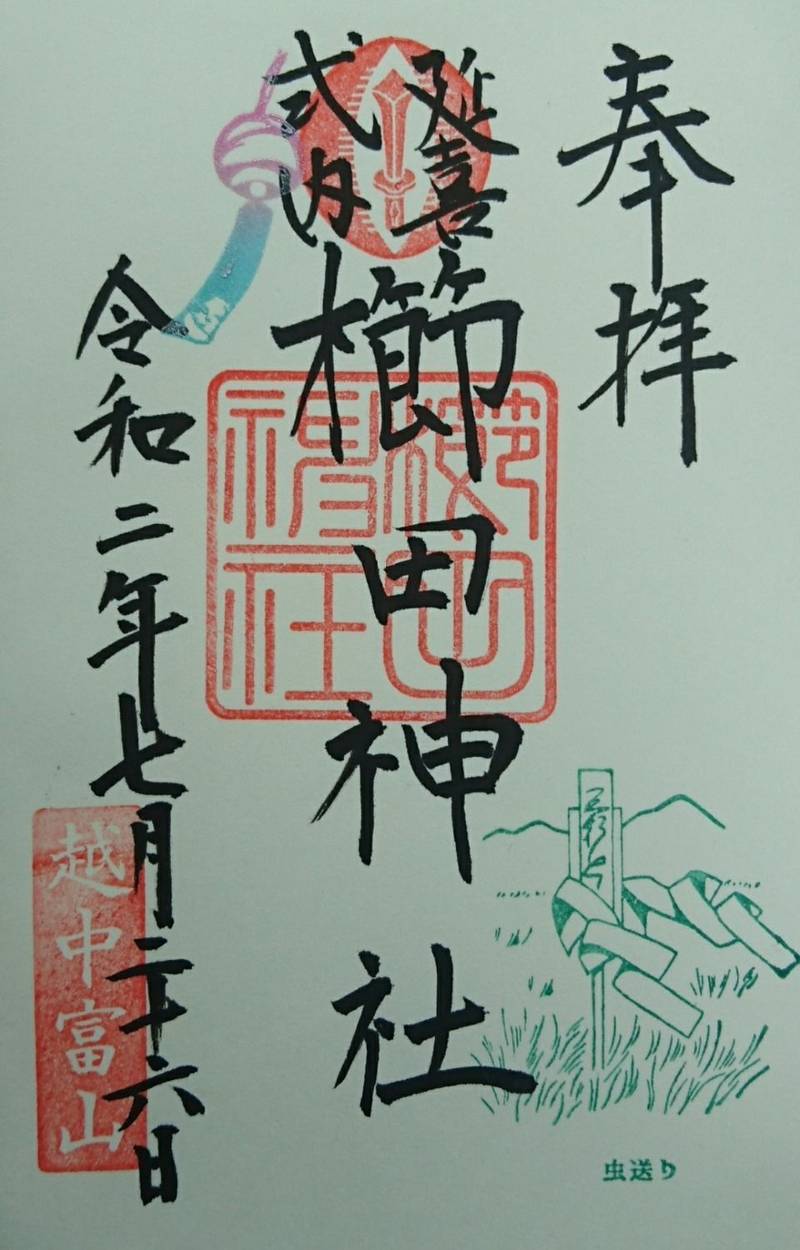 奉拝
延喜
式内
櫛田神社
令和二年七月二十六日
櫛田
神社
越中富山
虫送り